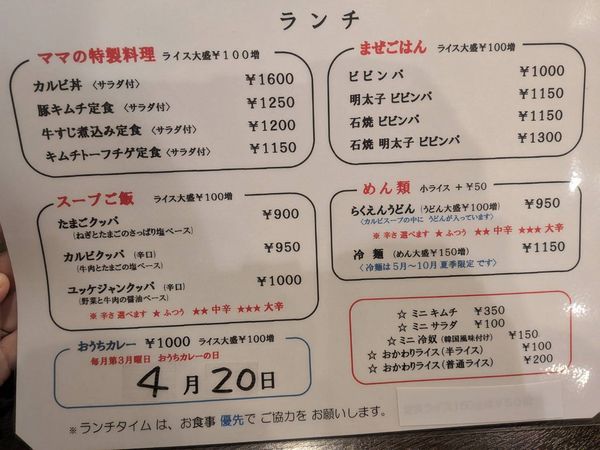 ランチ
ママの特製料理 ライス大盛¥100増
カルビ丼 〈サラダ付〉 ¥1600
豚キムチ定食 〈サラダ付〉 ¥1250
牛すじ煮込み定食 〈サラダ付〉 ¥1200
キムチトーフチゲ定食 〈サラダ付〉 ¥1150
まぜごはん ライス大盛¥100増
ビビンバ ¥1000
明太子 ビビンバ ¥1150
石焼 ビビンバ ¥1150
石焼 明太子 ビビンバ ¥1300
スープご飯 ライス大盛¥100増
たまごクッパ ¥900
(ねぎとたまごのさっぱり塩ベース)
カルビクッパ (辛口) ¥950
(牛肉とたまごの塩ベース)
ユッケジャンクッパ (辛口) ¥1000
(野菜と牛肉の醤油ベース)
※ 辛さ 選べます ★ ふつう ★★ 中辛 ★★★ 大辛
めん類 小ライス +¥50
らくえんうどん (うどん大盛¥100増) ¥950
〈カルビスープの中に うどんが入っています〉
※ 辛さ 選べます ★ ふつう ★★ 中辛 ★★★ 大辛
冷麺 (めん大盛¥150増) ¥1150
〈冷麺は5月～10月 夏季限定 です〉
おうちカレー ¥1000 ライス大盛¥100増
毎月第3月曜日 おうちカレーの日
4月20日
☆ ミニ キムチ ¥350
☆ ミニ サラダ ¥100
☆ ミニ 冷奴 (韓国風味付け) ¥150
☆ おかわりライス (半ライス) ¥100
☆ おかわりライス (普通ライス) ¥200
※ ランチタイム は、お食事 優先で ご協力を お願いします。